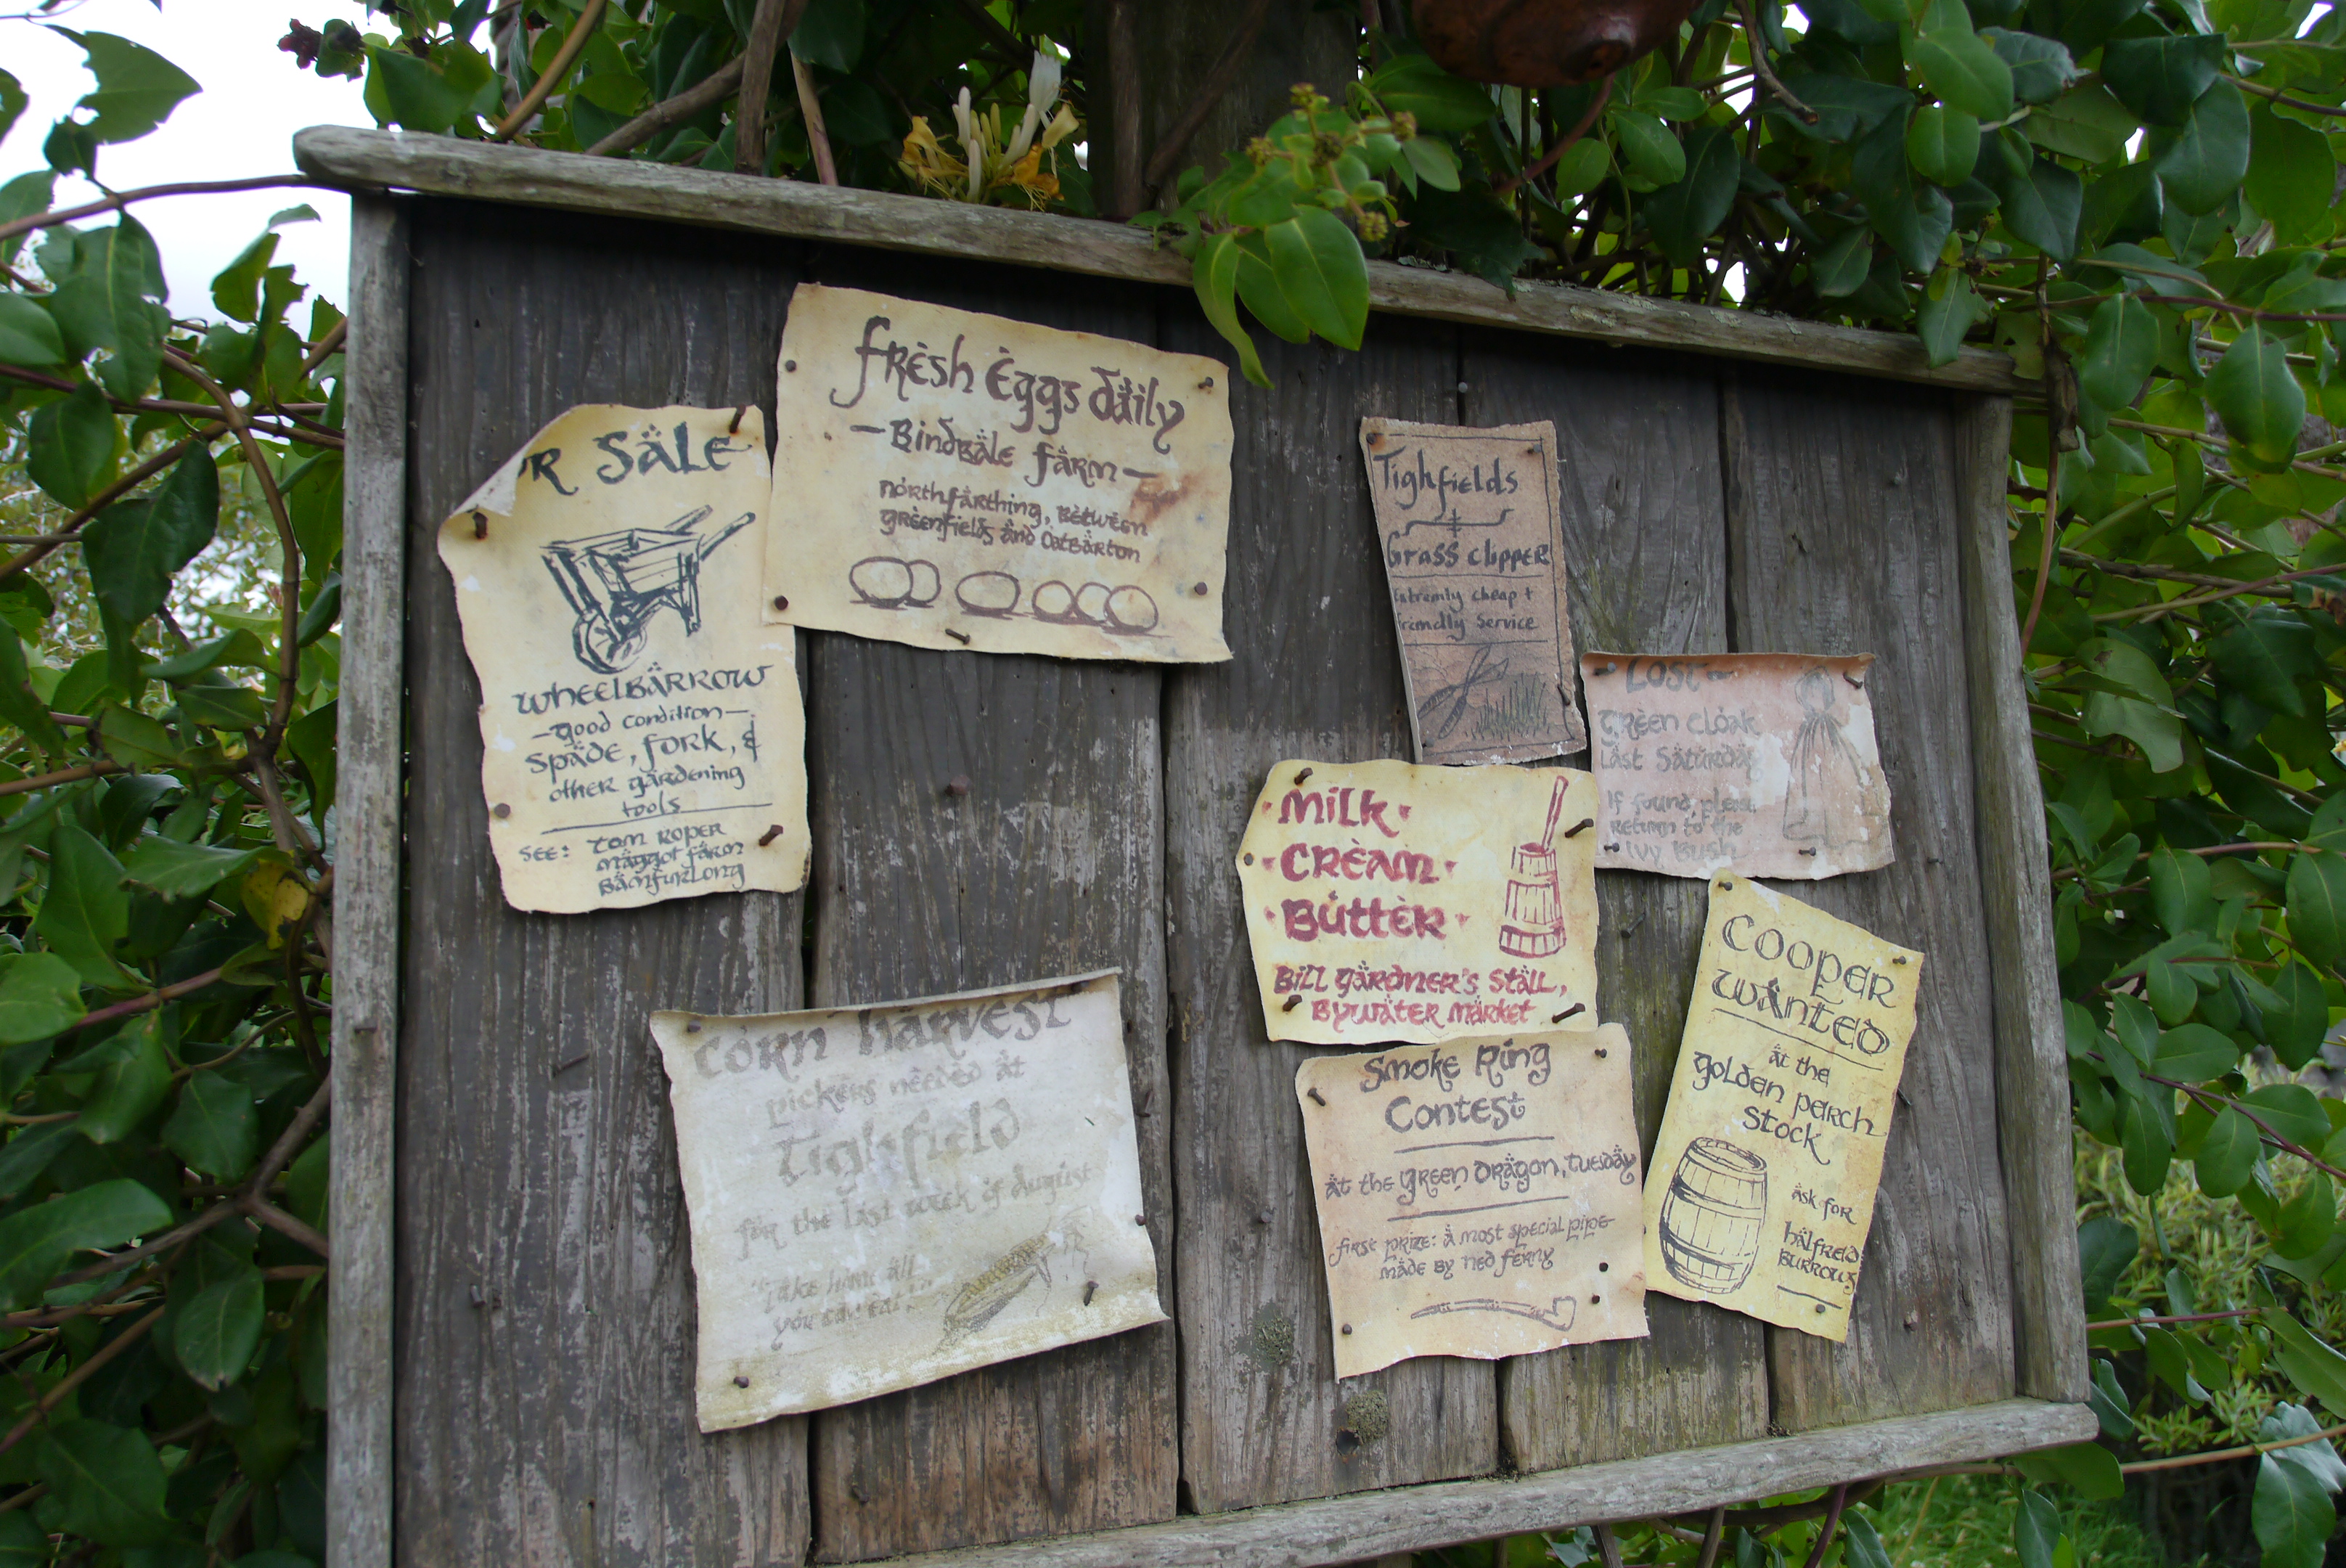 R Säle
wheelbärrow
—good condition—
späde, fork, &
other gärdening
tools
see: Tom Roper
mäggot färm
Bämfurlong
Fresh Eggs däily
—Bindbäle färm—
northfärthing, between
greenfields änd Oatbärton
Tighfields
Grass clipper
Extremly cheap +
Friendly Service
Lost—
Green cloak
Last Säturday
If found, please
return to the
Ivy Bush
·Milk·
·Cream·
·Butter·
Bill Gärdner's Ställ,
Bywäter Märket
Corn härvest
pickers needed ät
Tighfield
for the last week of August
"Take home all
you can eat!"
Smoke Ring
Contest
ät the Green Drägon, Tuesdäy
first prize: ä most special pipe
mäde by Ned Ferny
Cooper
Wänted
ät the
golden perch
Stock
äsk for
hälfred
Burrows